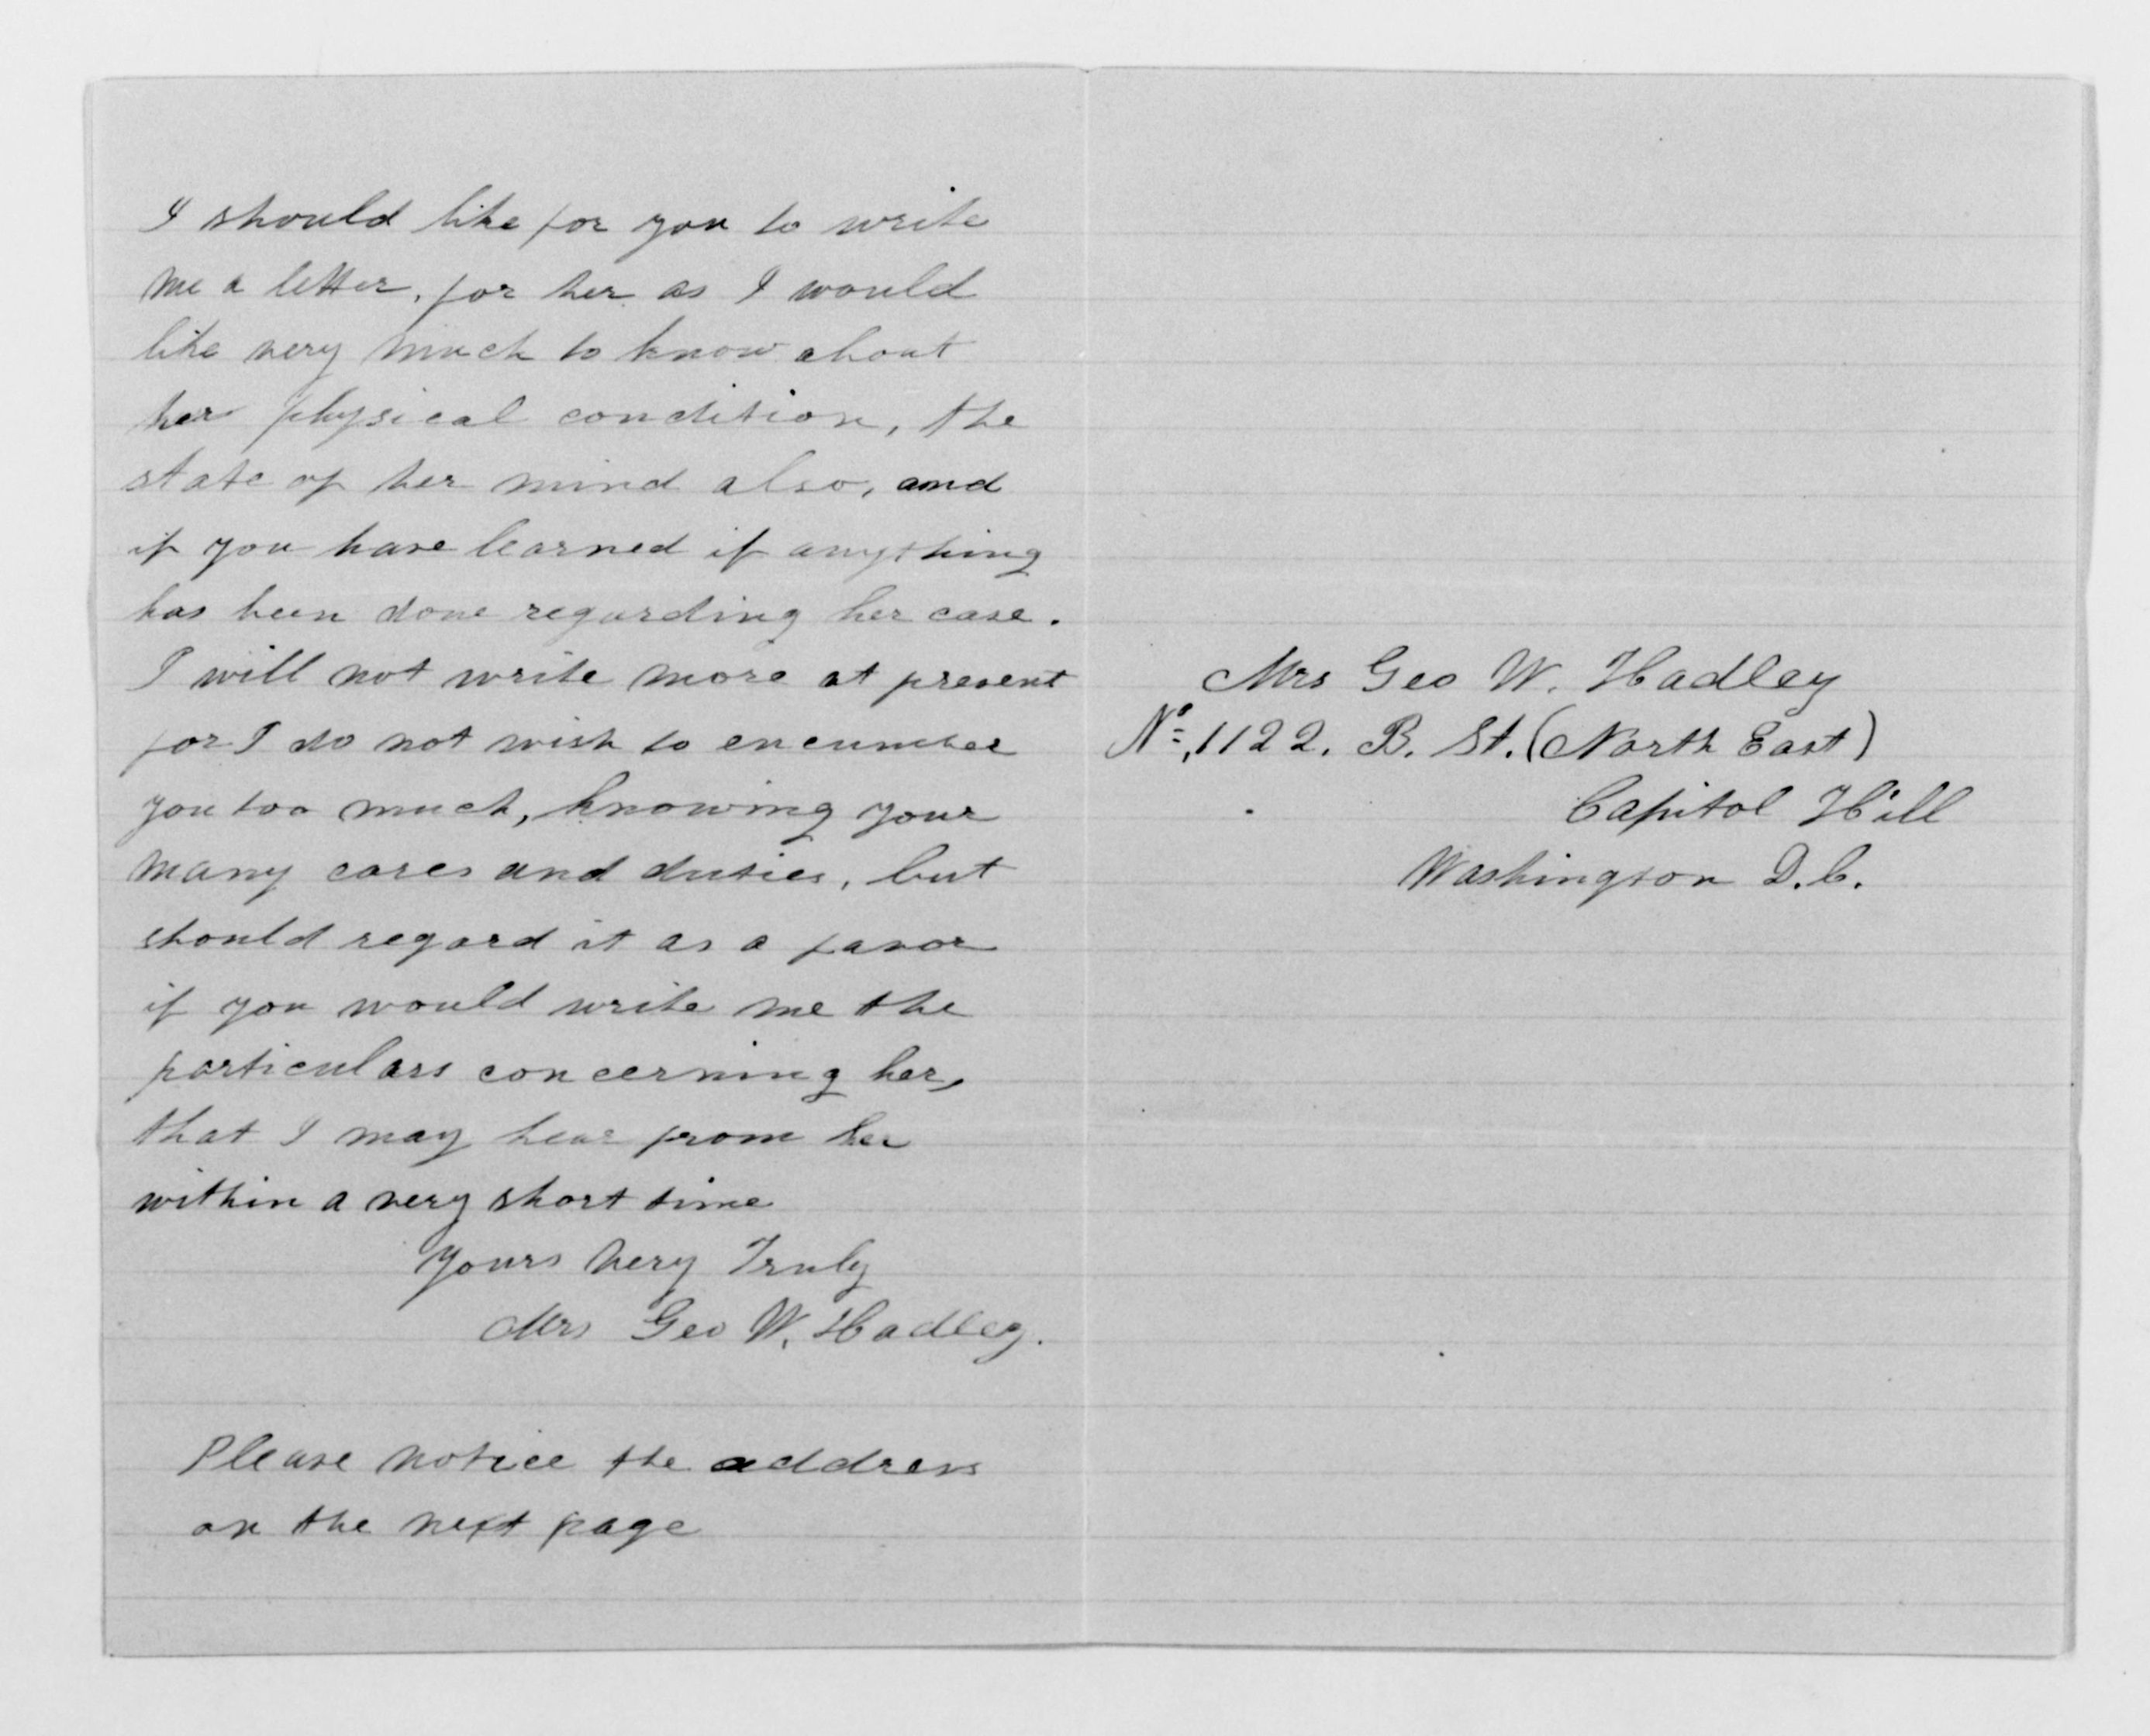 I should like for you to write
me a letter, for her as I would
like very much to know about
her physical condition, the
state of her mind also, and
if you have learned if anything
has been done regarding her case.
I will not write more at present
for I do not wish to encumber
you too much, knowing your
many cares and duties, but
should regard it as a favor
if you would write me the
particulars concerning her,
that I may hear from her
within a very short time
Yours Very Truly
Mrs Geo W. Hadley.
Please notice the address
on the next page
Mrs Geo W. Hadley
No. 1122. B. St. (North East)
Capitol Hill
Washington D.C.